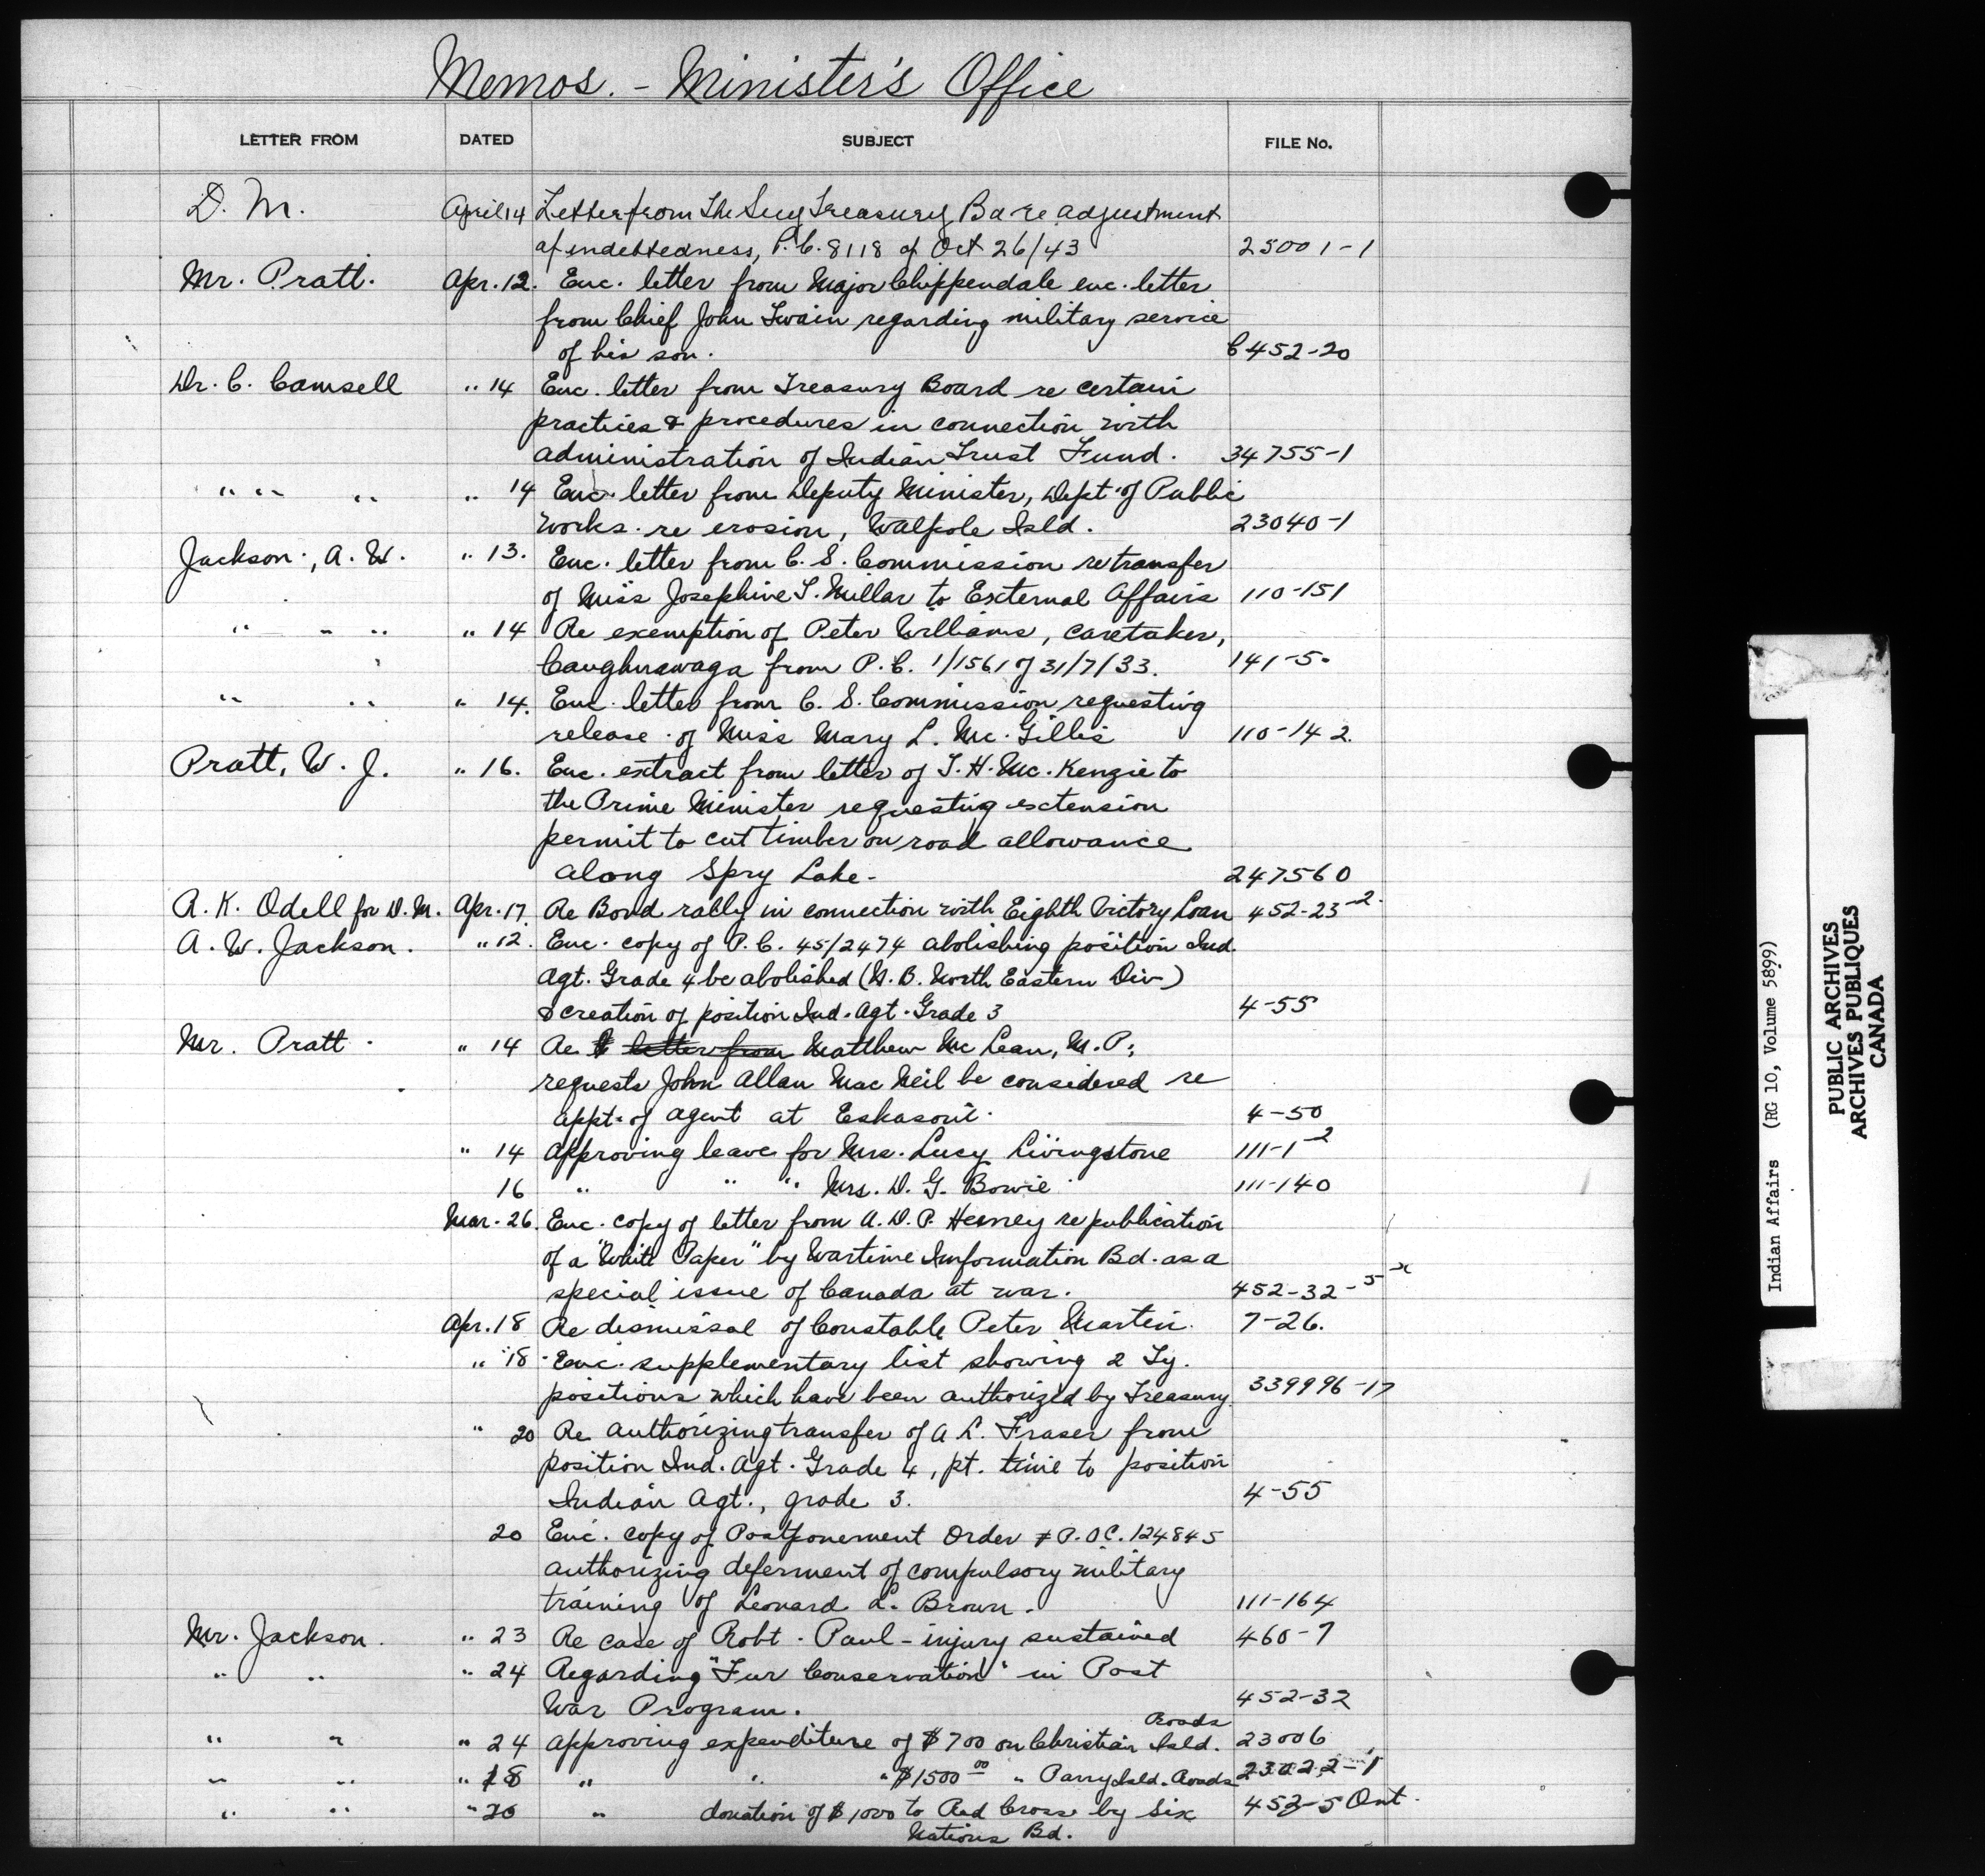 Memos. - Minister's Office
LETTER FROM DATED SUBJECT FILE No.
D. M. April 14 Letter from the Secy Treasury Bd re adjustment
of indebtedness, P.C. 8118 of Oct 26/43 25001-1
Mr. Pratt. Apr. 12. Enc. letter from Major Chippendale enc. letter
from Chief John Swain regarding military service
of his son. C452-20
Dr. C. Camsell " 14 Enc. letter from Treasury Board re certain
practices & procedures in connection with
administration of Indian Trust Fund. 34755-1
" " " " 14 Enc. letter from Deputy Minister, Dept. of Public
Works. re erosion, Walpole Isld. 23040-1
Jackson., A. W. " 13. Enc. letter from C. S. Commission re transfer
of Miss Josephine T. Millar to External Affairs 110-151
" " " " 14 Re exemption of Peter Williams, caretaker,
Caughnawaga from P. C. 1/1561 of 31/7/33. 141-5.
" " " 14. Enc. letter from C. S. Commission requesting
release of Miss Mary L. Mc. Gillis 110-142.
Pratt, W. J. " 16. Enc. extract from letter of T. H. Mc. Kenzie to
the Prime Minister requesting extension
permit to cut timber on road allowance
along Spry Lake. 247560
A. K. Odell for D. M. Apr. 17 Re Bond rally in connection with Eighth Victory Loan 452-23-2.
A. W. Jackson. " 12. Enc. copy of P. C. 45/2474 abolishing position Ind.
Agt. Grade 4 be abolished (N. B. North Eastern Div)
& creation of position Ind. Agt. Grade 3 4-55
Mr. Pratt. " 14 Re letter from Matthew Mc Lean, M. P.;
requests John Allan Mac Neil be considered re
appt. of agent at Eskasoni. 4-50
" 14 Approving leave for Mrs. Lucy Livingstone 111-1-2
16 " " " Mrs. D. G. Bowie 111-140
Mar. 26. Enc. copy of letter from A. D. P. Heeney re publication
of a "White Paper" by Wartime Information Bd. as a
special issue of Canada at war. 452-32-5-x
Apr. 18 Re dismissal of Constable Peter Martin. 7-26.
" 18 Enc. supplementary list showing 2 Ty.
positions which have been authorized by Treasury. 339996-17
" 20 Re authorizing transfer of A L. Fraser from
position Ind. Agt. Grade 4, pt. time to position
Indian Agt., grade 3. 4-55
20 Enc. copy of Postponement Order # P.O.C. 124845
authorizing deferment of compulsory military
training of Leonard L. Brown. 111-164
Mr. Jackson. " 23 Re case of Robt. Paul - injury sustained 460-7
" " " 24 Regarding "Fur Conservation" in Post
War Program. 452-32
" " " 24 Approving expenditure of $700 on Christian Isld. Roads 23006
" " " 18 " " " $1500 00 " Parry Isld. Roads 23022-1
" " " 20 " donation of $1000 to Red Cross by Six
Nations Bd. 452-5 Ont.
Indian Affairs (RG 10, Volume 5899)
PUBLIC ARCHIVES
ARCHIVES PUBLIQUES
CANADA